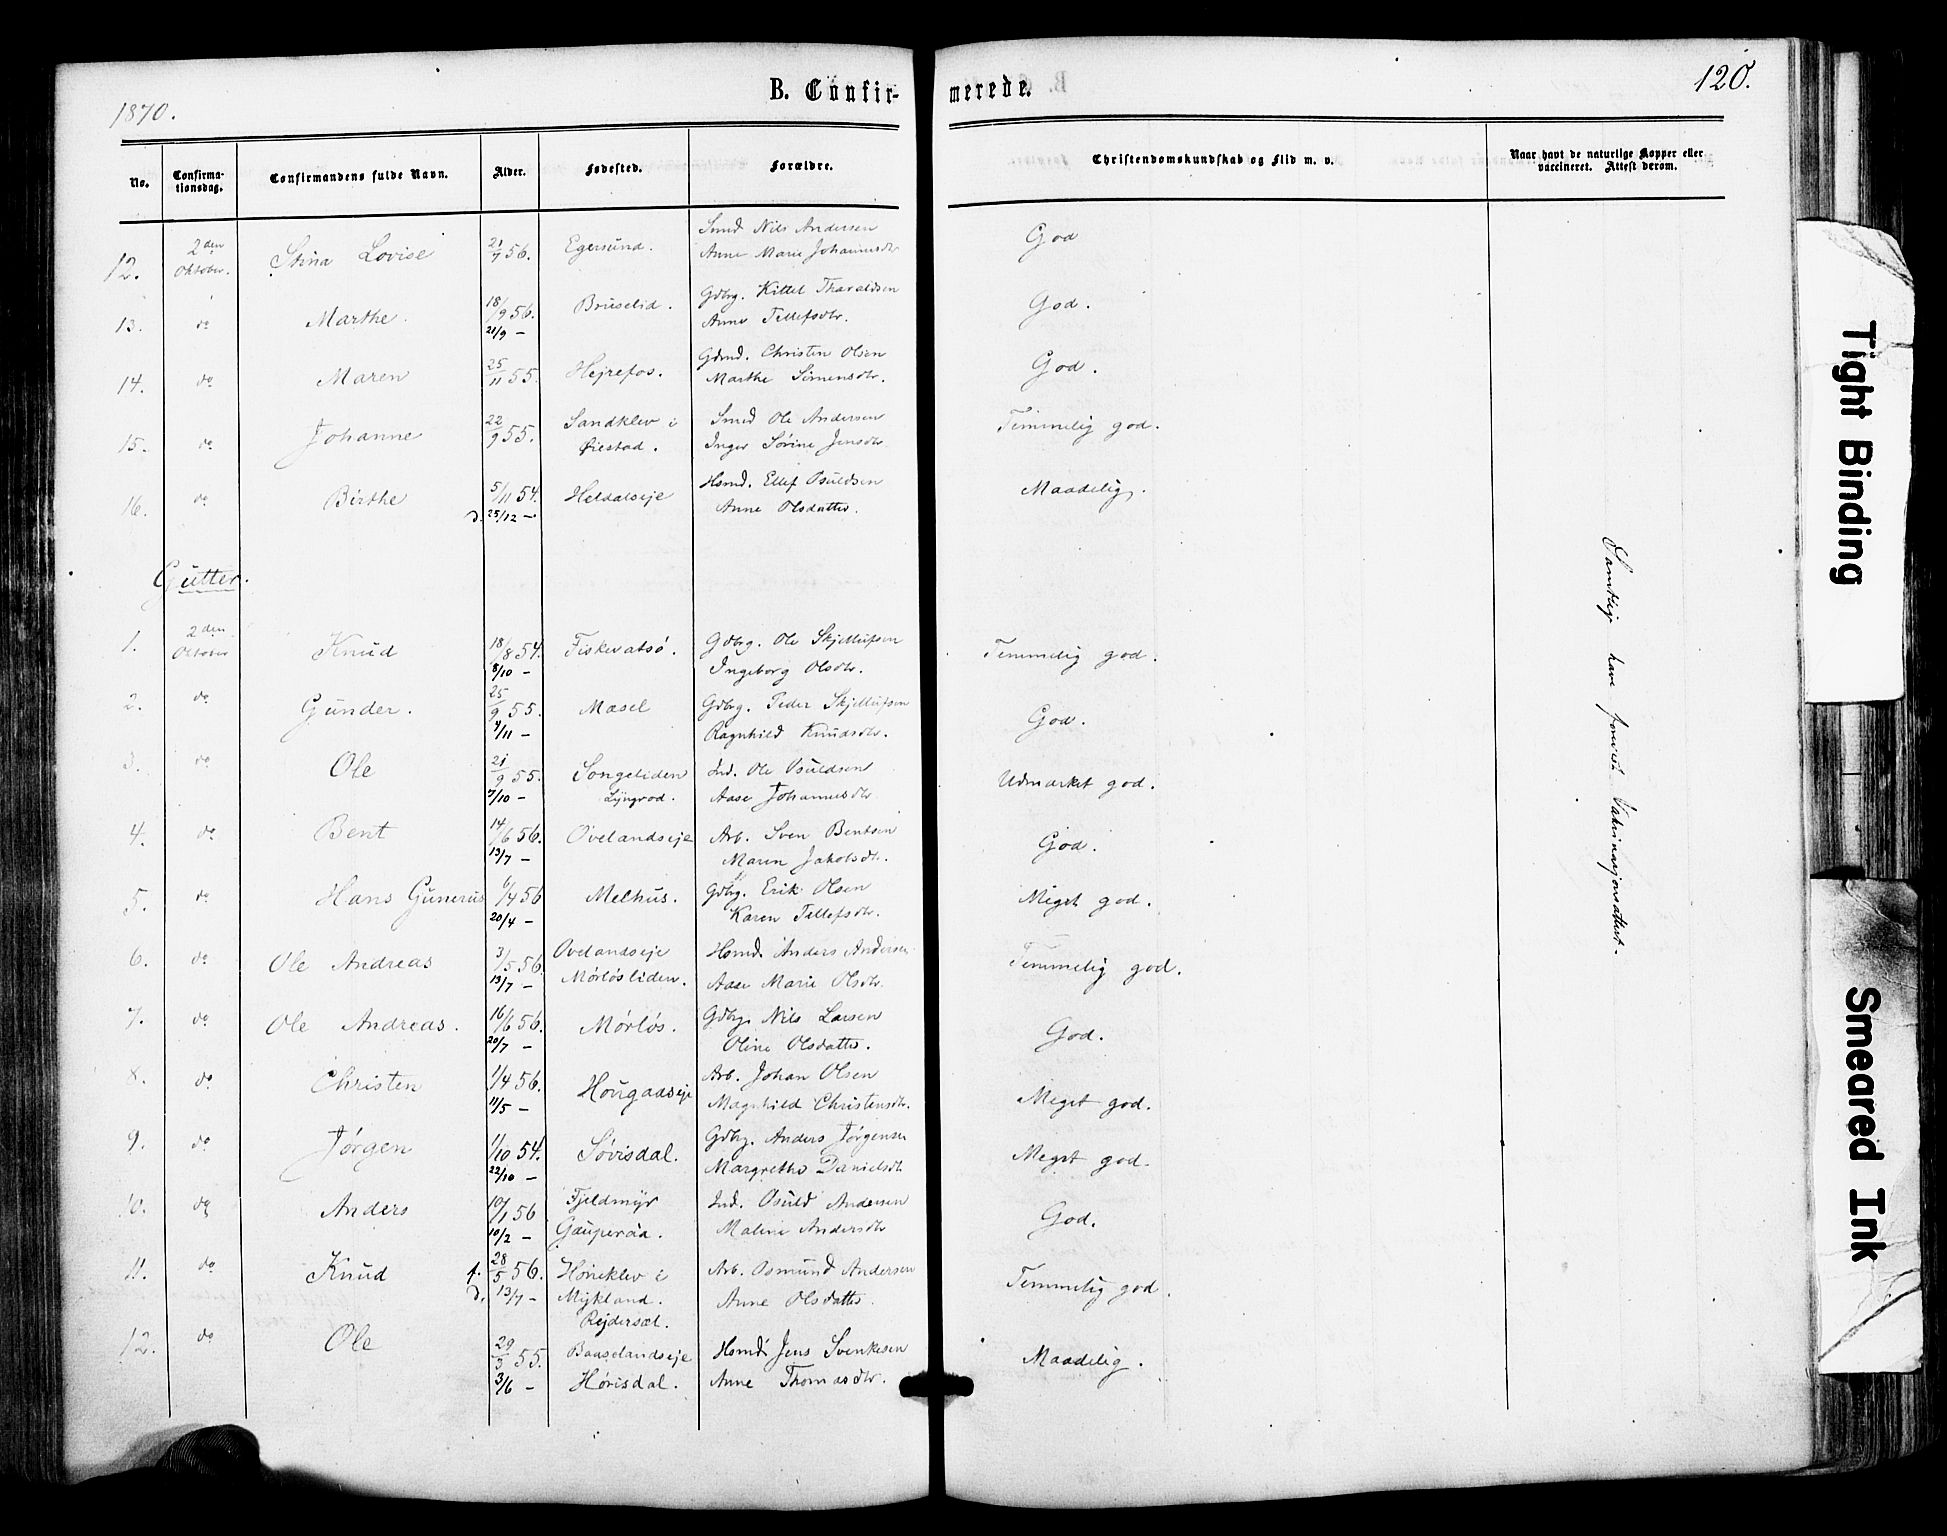 1870.
B. Confir-
merede.
120.
No.
Confirma-
tionsdag.
Confirmandens fulde Navn.
Alder.
Fødested.
Forældre.
Christendomskundskab og Flid m. v.
Naar havt de naturlige Kopper eller
vaccineret. Attest derom.
12. 2den Oktober. Stina Lovise 21/7 56. Egersund. Smed Nils Andersen God
Anne Marie Johannesdtr
13. do Marthe. 18/9 56. Bruselid. Gdbrg. Kittel Tharaldsen God.
21/9 – Anne Tellefsdtr.
14. do Maren 25/11 55. Hejrefos. Gdmd. Christen Olsen God.
Marthe Simensdtr.
15. do Johanne 22/9 55. Sandklev i Smed Ole Andersen Temmelig god.
Øiestad. Inger Sørine Jensdtr
16. do Birthe 5/11 54. Heldalseje Hsmd. Ellef Osuldsen Maadelig.
d. 25/12 – Anne Olsdatter.
Gutter.
1. 2den Oktober Knud 18/8 54. Fiskevatsø. Gdbrg. Ole Skjellufsen Temmelig god.
8/10 – Ingeborg Olsdtr.
2. do Gunder. 25/9 55. Mæsel Gdbrg. Peder Skjellufsen God.
4/11 – Ragnhild Knudsdtr.
3. do Ole 21/9 55. Songeliden Ind. Ole Osuldsen Udmærket god.
7/10 – Lyngrod. Aase Johannesdtr.
4. do Bent 14/6 56. Ovelandseje Arb. Sven Bentsen God.
13/7 – Maren Jakobsdtr.
5. do Hans Gunerus 6/4 56 Melhus. Gdbrg. Erik Olsen Meget god.
20/4 – Karen Tellefsdtr.
6. do Ole Andreas 3/5 56. Ovelandseje Hsmd. Anders Andersen Temmelig god.
13/7 – Mørløsliden. Aase Marie Olsdtr.
7. do Ole Andreas. 16/6 56. Mørløs. Gdbrg. Nils Larsen God.
20/7 – Oline Olsdatter.
8. do Christen 1/4 56. Hougaaseje Arb. Johan Olsen Meget god.
11/5 – Magnhild Christensdtr.
9. do Jørgen 1/10 54. Søvisdal. Gdbrg. Anders Jørgensen Meget god.
22/10 – Margrethe Danielsdtr
10. do Anders 10/1 56 Fjeldmyr Ind. Osuld Andersen God.
10/2 – Gauperaa. Maline Andersdtr
11. do Knud f. 28/5 56. Høneklev i Arb. Osmund Andersen Temmelig god.
d. 13/7 – Mykland. Anne Olsdatter.
Rejdersæl.
12. do Ole 29/3 55. Baaselandseje Hsmd. Jens Svenkesen Maadelig.
3/6 – Hørisdal. Anne Thomasdtr.
Samtlige have forevist Vakcinasjonsattest.
Tight Binding
Smeared Ink